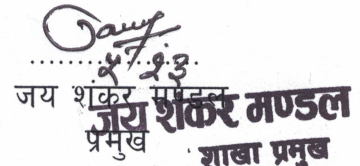 जय शंकर मण्डल
प्रमुख
जय शंकर मण्डल
शाखा प्रमुख